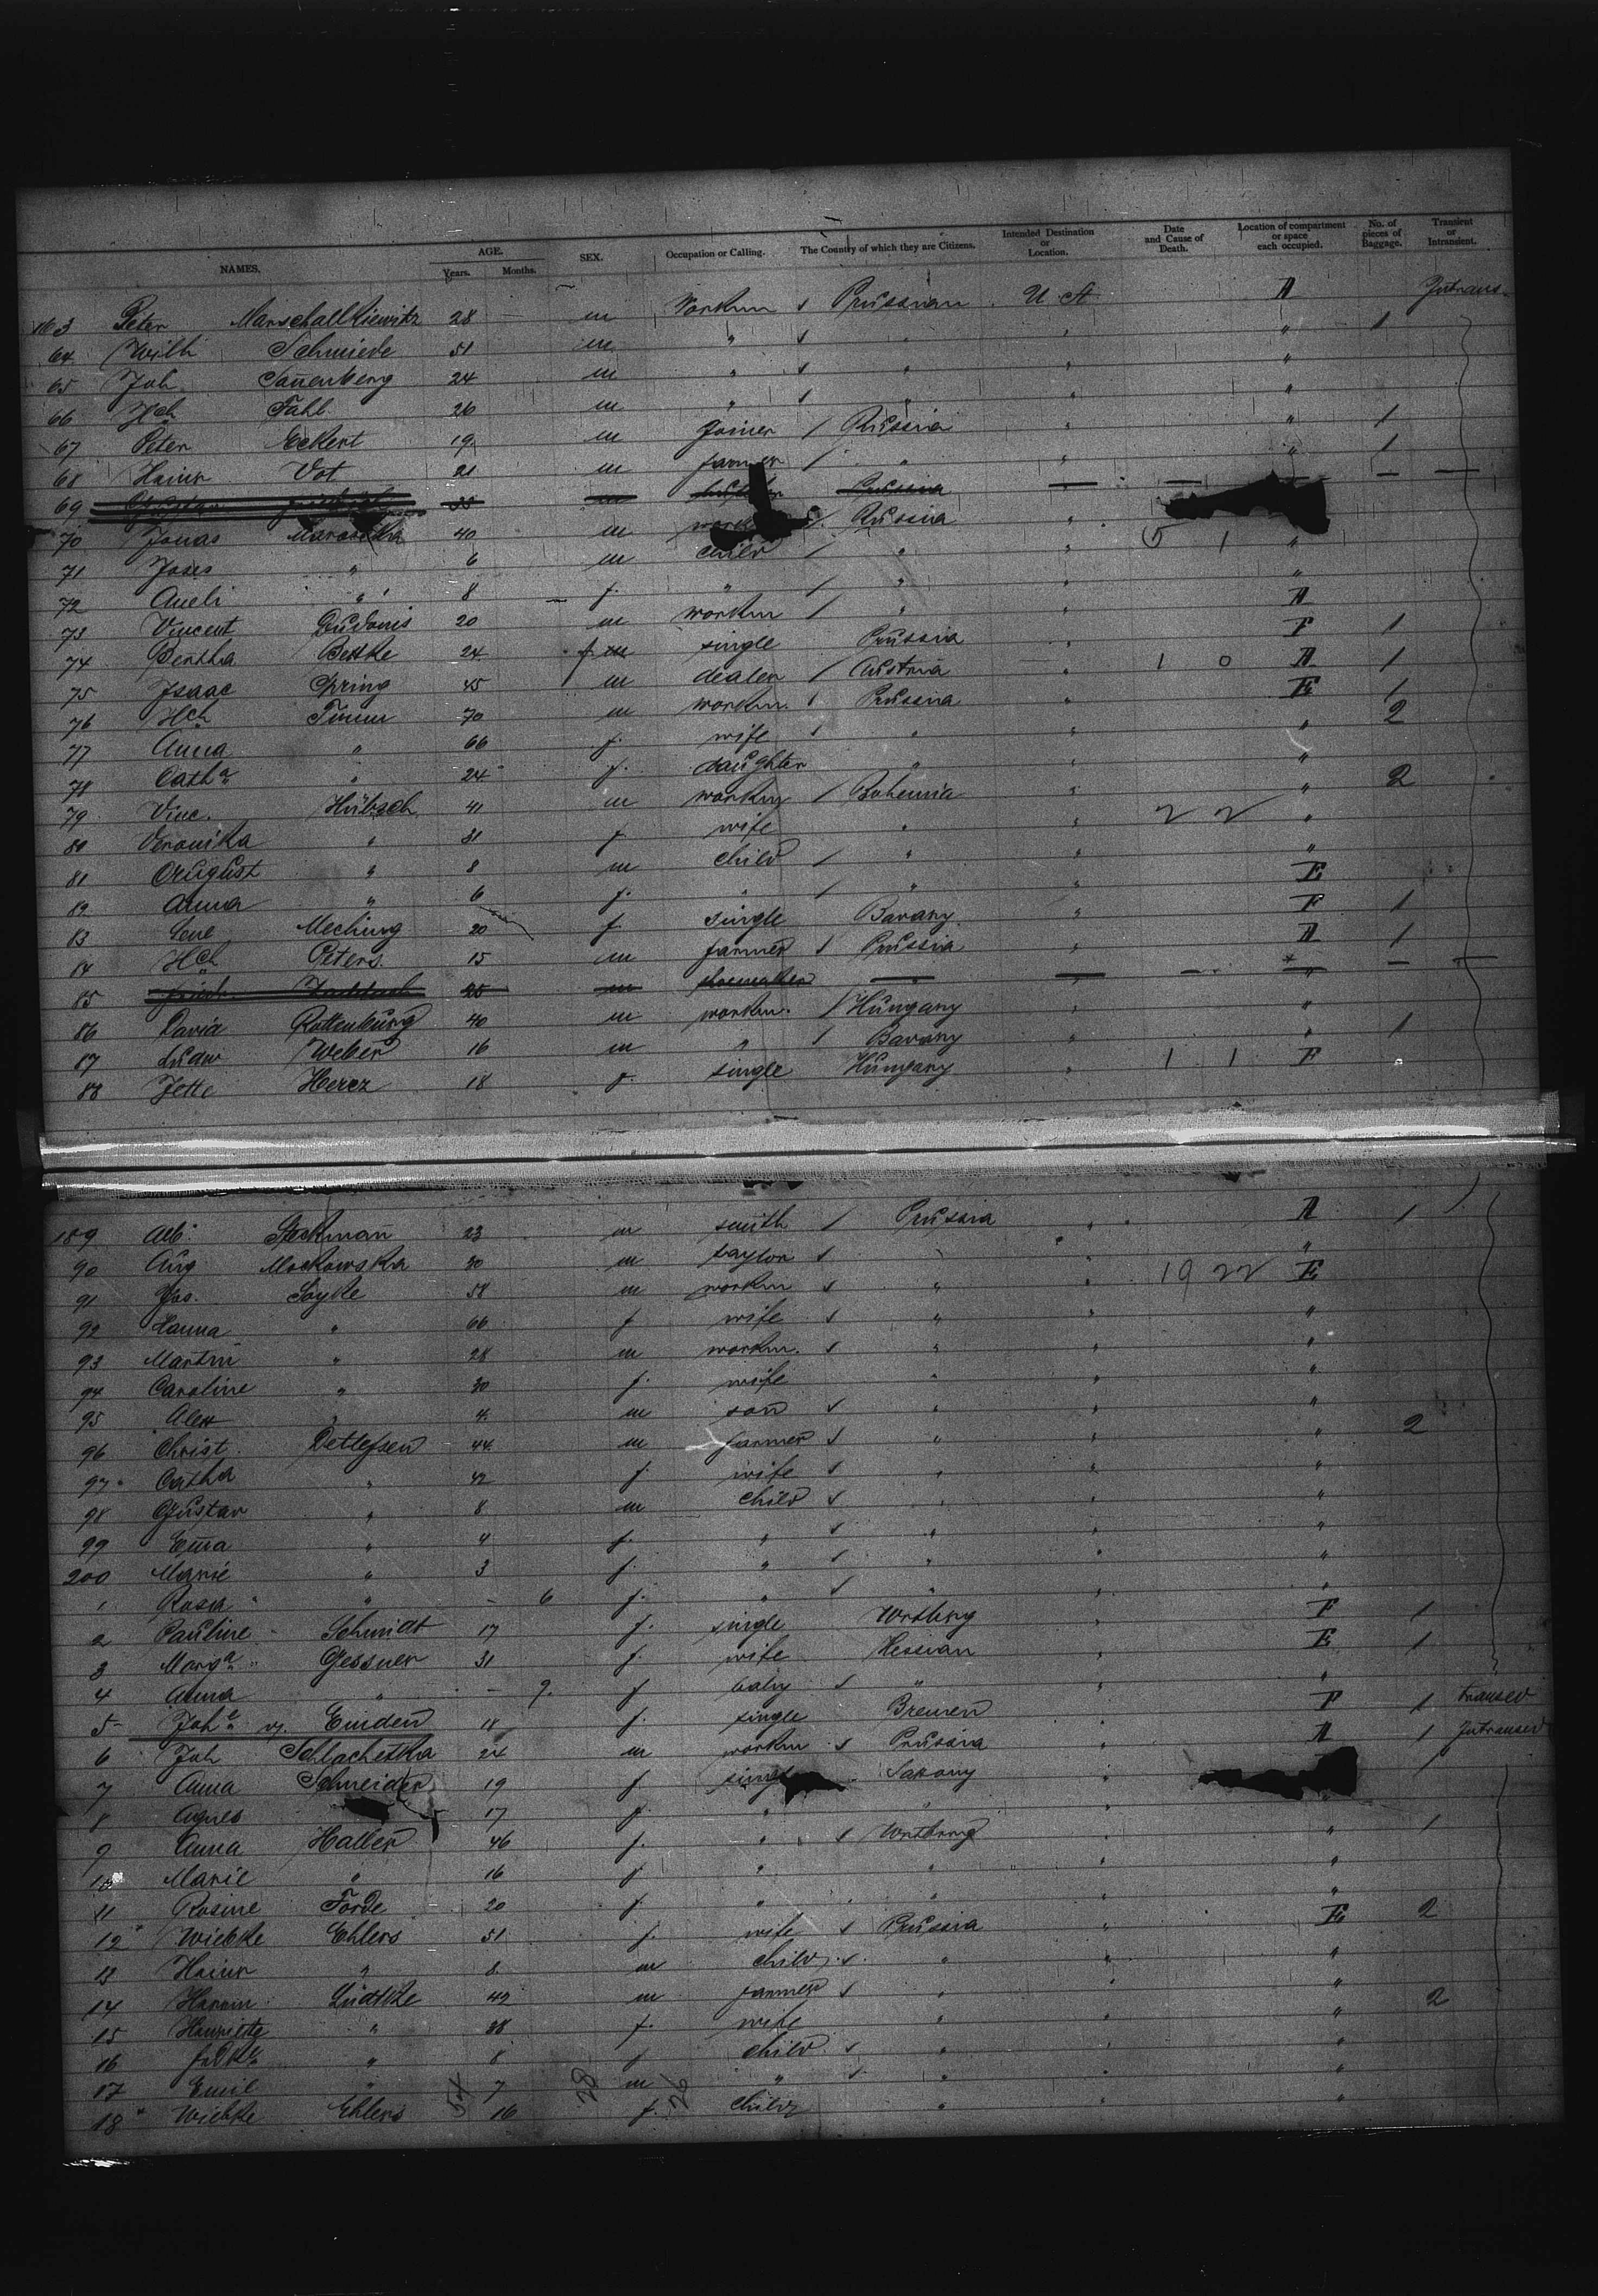 NAMES. AGE. Years. Months. SEX. Occupation or Calling. The Country of which they are Citizens. Intended Destination or Location. Date and Cause of Death. Location of compartment or space each occupied. No. of pieces of Baggage. Transient or Intransient.
163 Peter Marschallkiewitz 28 — m Workm Prussian U. St. A Intrans
64 Wilh Schmiede 51 m " " " " 1
65 Joh. Sanenberg 24 m " " " "
66 Hch Fahl 26 m " " " "
67 Peter Eckert 19 m joiner / Russia " " 1
68 Heinr Vot 21 m farmer / " " " 1
69 33 m Prussia
70 Jonas 40 m Russia "
71 Joses " 6 m child / " " 5 1 "
72 Aneli " 8 f. " / " " "
73 Vincent Dudonis 20 m workm / " " A
74 Bertha Bethke 24 f single Prussia " F 1
75 Isaac Spring 45 m dealer / Austria " 1 0 A 1
76 Hch Timm 70 m workm. / Prussia " E 1
77 Anna " 66 f. wife / " " " 2
78 Catha " 24 f. daughter " " "
79 Vinc. Hübsch 41 m workm / Bohemia " " 2
80 Veronika " 31 f. wife " " 2 2 "
81 August " 8 m child / " " "
82 Anna " 6 f. " / " " E
83 Lene Meching 20 f single Bavary " F 1
84 Hch Peters 15 m farmer / Prussia " A 1
85 25 m shoemaker — "
86 David Rottenburg 40 m workm. / Hungary "
87 Ludw Weber 16 m " / Bavary " " 1
88 Jette Hercz 18 f. single Hungary " 1 1 F
189 Alb. Steckman 23 m smith / Prussia " A 1
90 Aug Mockowska 30 m taylor / " " "
91 Jos. Soyke 58 m workm / " " 19 22 E
92 Hanna " 66 f wife / " " "
93 Martin " 28 m workm. / " " "
94 Caroline " 30 f. wife " " "
95 Alex " 4 m son / " " "
96 Christ Detlefsen 44 m farmer / " " " 2
97 Catha " 42 f. wife / " " "
98 Gustav " 8 m child / " " "
99 Ema " 4 f. " / " " "
200 Marie " 3 f. " / " " "
1 Rosa " — 6 f. " / " " "
2 Pauline Schmidt 17 f. single Wrtbrg " F 1
3 Marga Gessner 31 f. wife Hessian " E 1
4 Anna " — 9. f baby / " " "
5 Johe v. Emden 18 f. single Bremen F 1 transed
6 Joh Schlachetka 24 m workm / Prussia " A 1 Intransed
7 Anna Schneider 19 f single Saxony " 1
8 Agnes 17 f. " " "
9 Anna Haller 46 f. " / Wrtbrg " " 1
10 Marie " 16 f " " " "
11 Rosine Forde 20 f. " " " "
12 Wiebke Ehlers 51 f. wife / Prussia " E 2
13 Heinr " 8 m child / " " "
14 Herrm Lüdtke 42 m farmer / " " " 2
15 Henriette " 38 f. wife " " "
16 " 8 f child / " " "
17 Emil " 7 m " / " " "
18 Wiebke Ehlers 16 f. child " " "
54 28 26